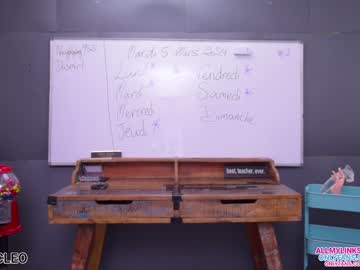 Mardi 5 Mars 2024
Lundi *
Mardi *
Mercredi
Jeudi *
Vendredi *
Samedi *
Dimanche
best. teacher. ever.
CLEO
ALLMYLINKS
ONLYFANS
ONLYFANS.C